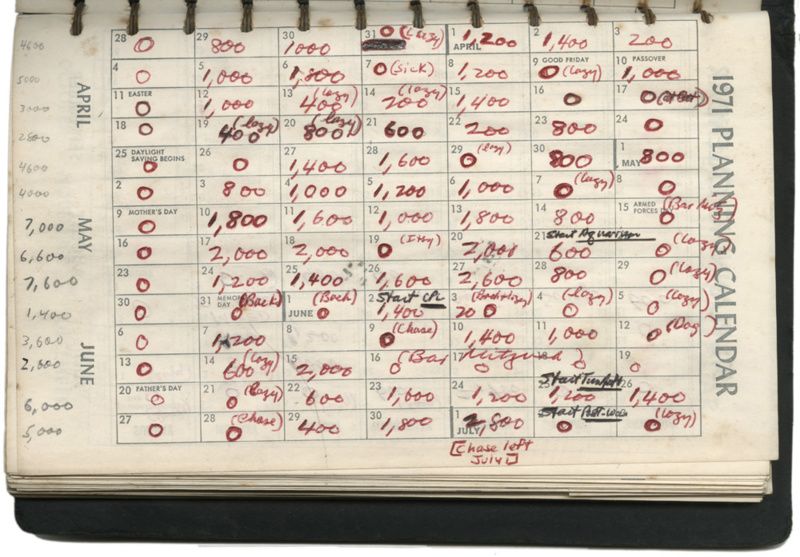 1971 PLANNING CALENDAR
APRIL
MAY
JUNE
4600 28 0 29 800 30 1000 31 0 (Lazy) 1 APRIL 1,200 2 1,400 3 200
5000 4 0 5 1,000 6 1,800 7 0 (Sick) 8 1,200 9 GOOD FRIDAY 0 (lazy) 10 PASSOVER 1,000
3000 11 EASTER 0 12 1,000 13 (lazy) 400 14 (lazy) 200 15 1,400 16 0 17 0
2800 18 0 19 (lazy) 400 20 (lazy) 800 21 600 22 200 23 800 24 0
4600 25 DAYLIGHT SAVING BEGINS 0 26 0 27 1,400 28 1,600 29 0 (lazy) 30 800 1 MAY 800
4000 2 0 3 800 4 1,000 5 1,200 6 1,000 7 0 (lazy) 8 0
7,000 9 MOTHER'S DAY 0 10 1,800 11 1,600 12 1,000 13 1,800 14 800 15 ARMED FORCES 0 (Bar Mitz)
6,600 16 0 17 2,000 18 2,000 19 0 (Ithy) 20 2,000 21 Start Aquarium 600 0 (Lazy)
7,600 23 0 24 1,200 25 1,400 26 1,600 27 2,600 28 800 29 0 (Lazy)
1,400 30 0 31 MEMORIAL DAY (Back) 0 1 JUNE (Back) 0 2 Start CPL 1,400 3 0 4 0 (lazy) 5 0 (Lazy)
3,600 6 0 7 1,200 8 0 9 0 (Chase) 10 1,400 11 1,000 12 0 (Dog)
2,600 13 0 14 (lazy) 600 15 2,000 16 0 (Bar 17 Mitzvah 18 0) 19 0
6,000 20 FATHER'S DAY 0 21 0 (lazy) 22 600 23 1,600 24 1,200 Start 1,200 26 1,400
5,000 27 0 28 0 (Chase) 29 400 30 1,800 1 JULY 2,800 Start 0 0 (lazy)
[Chase left
July 1]